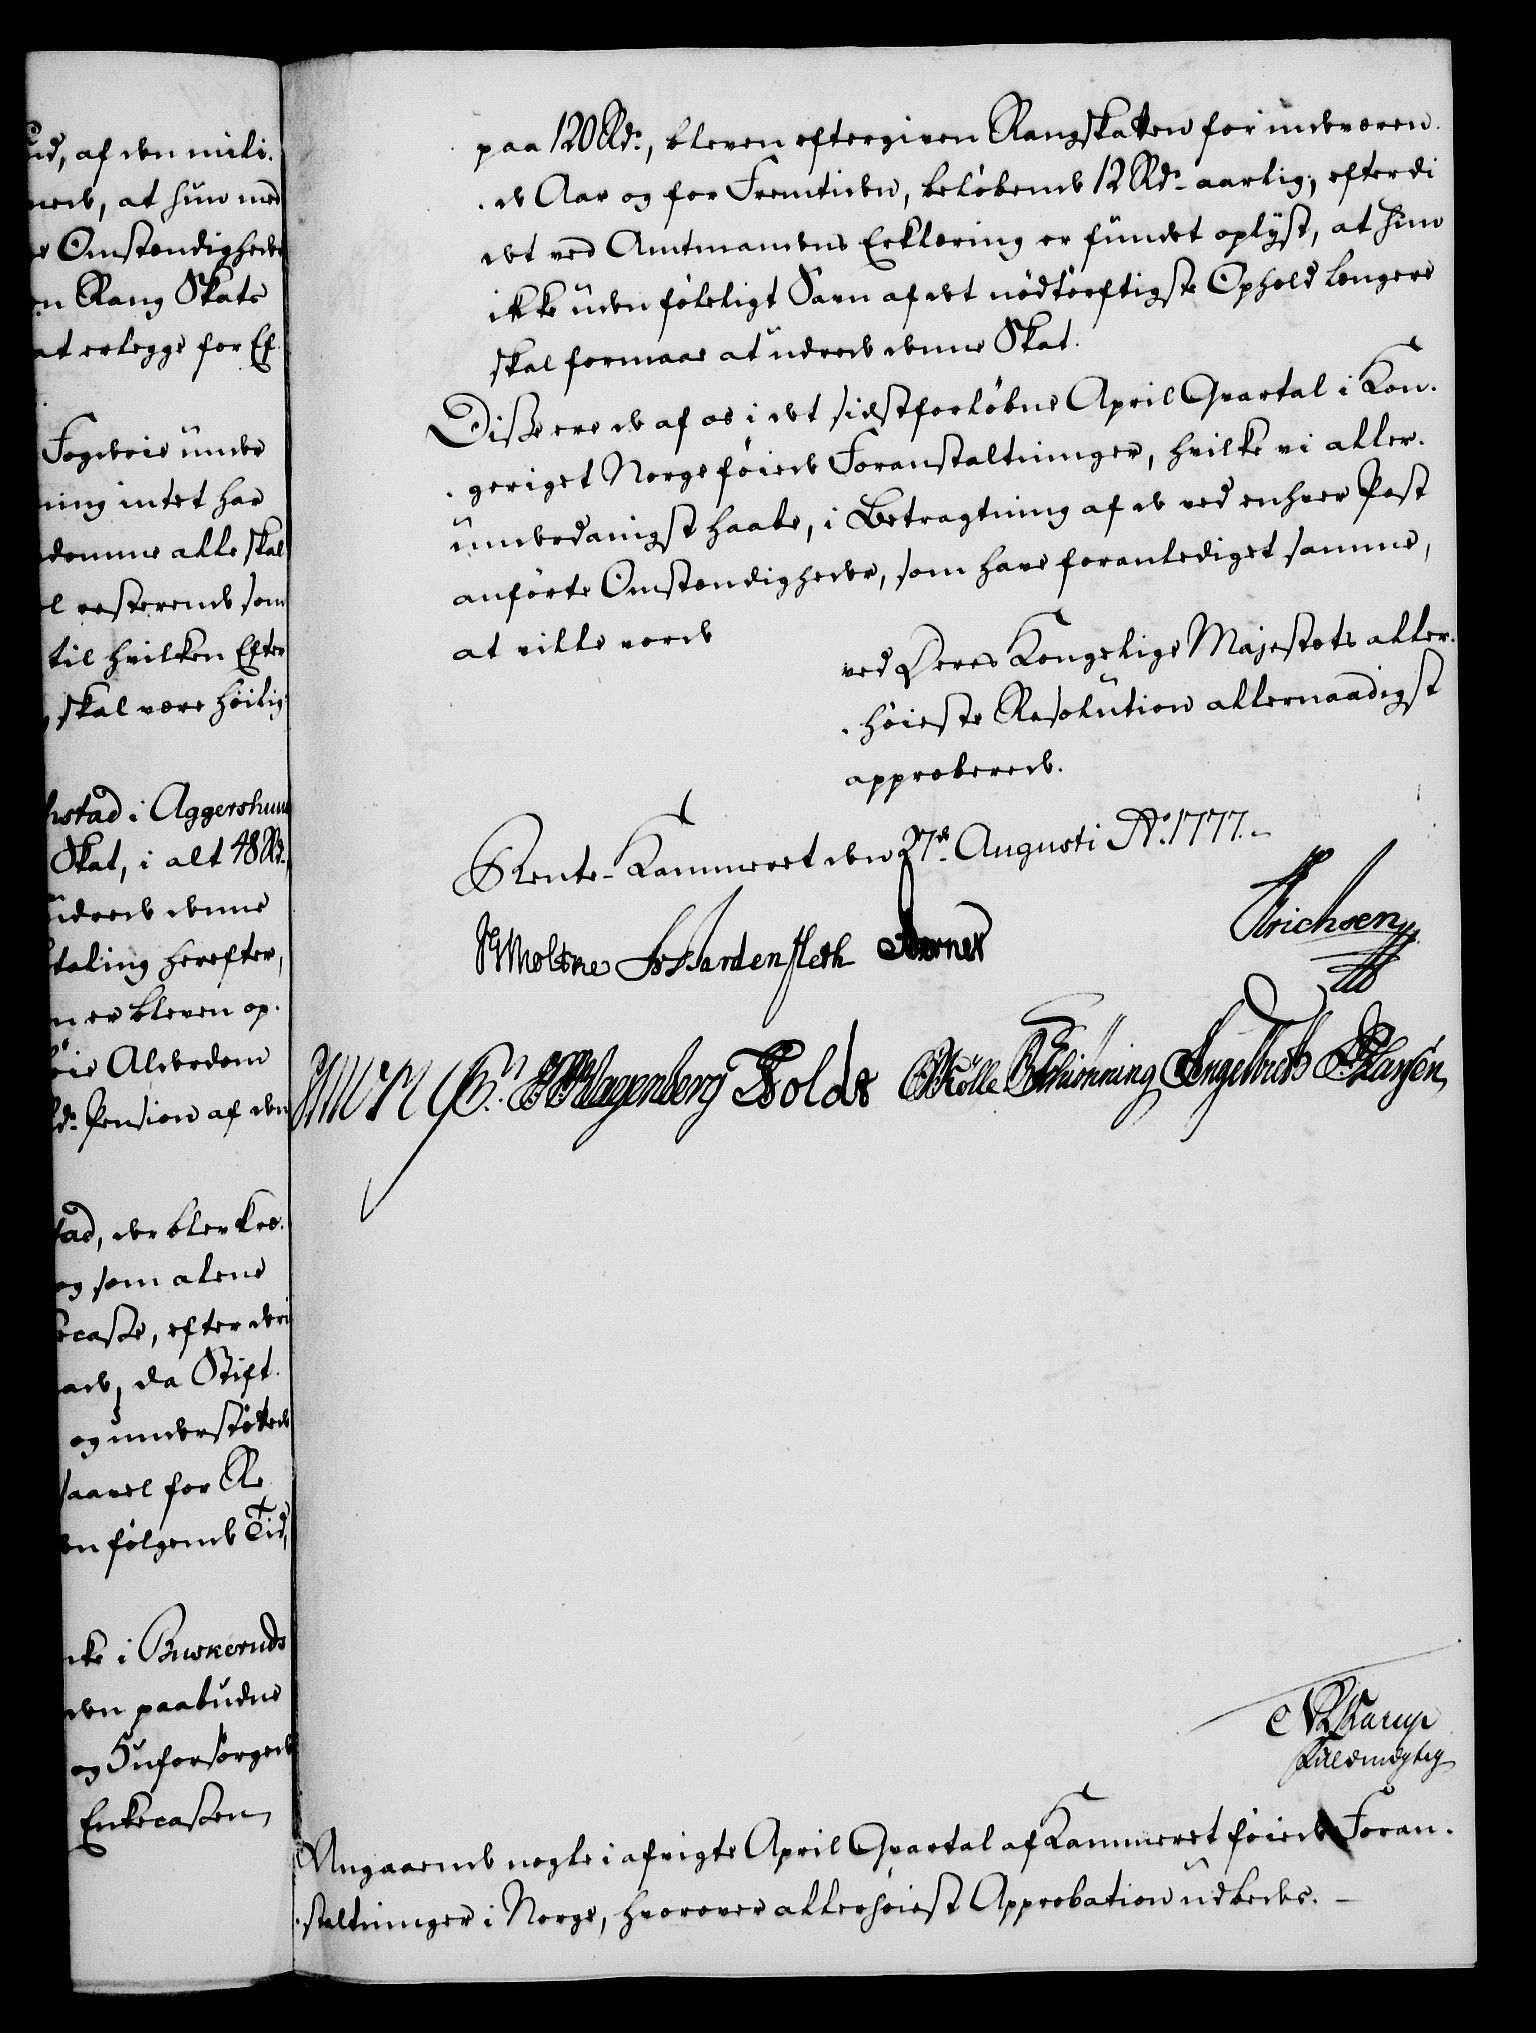 ud, af den mili-
nede, at hun med
e Omstændigheder
en Rang Skatt
at erlegge for Ef-
Fogderie under
ning intet har
domme alle skal
l resterende som
til hvilken Efter
skal være höilig
hstad i Aggershuus
Skat, i alt 48 Rd.
udrede denne
taling herefter,
n er bleven op-
öie Alderdom
d. Pension af den
tad, der blev Kræ-
og som alene
ecasse, efter deri
ade, da Stift-
og understöttede
saavel for Re-
en fölgende Tid,
cke i Buskeruds
den paabudne
og 5 uforsörgede
Enkecassen
paa 120 Rdr., bleven eftergiven Rangskatten for indværen-
-de Aar og for Fremtiden, belöbende 12 Rdr. aarlig; efterdi
det ved Amtmandens Erklæring er fundet oplyst, at hun
ikke uden föleligt Savn af det nödtörftigste Ophold længere
skal formaae at udrede denne Skat.
Disse ere de af os i det sidstforlöbne April Qvartal i Kon-
-geriget Norge föiede Foranstaltninger, hvilke vi aller-
underdanigst haabe, i Betragtning af de ved enhver Post
anförte Omstændigheder, som have foranlediget samme,
at ville vorde
ved Deres Kongelige Majestæts aller-
-höieste Resolution allernaadigst
approberede.
Rente-Kammeret den 27de Augusti Ao. 1777.
HMoltke Hardenfleth Berner
Erichsen
Klagenberg Tolds Mölle Schiönning Engelbreth Clausen
Karup
Fuldmægtig
Angaaende nogle i afvigte April Qvartal af Kammeret föiede Foran-
-staltninger i Norge, hvorover allerhöiest Approbation udbedes.